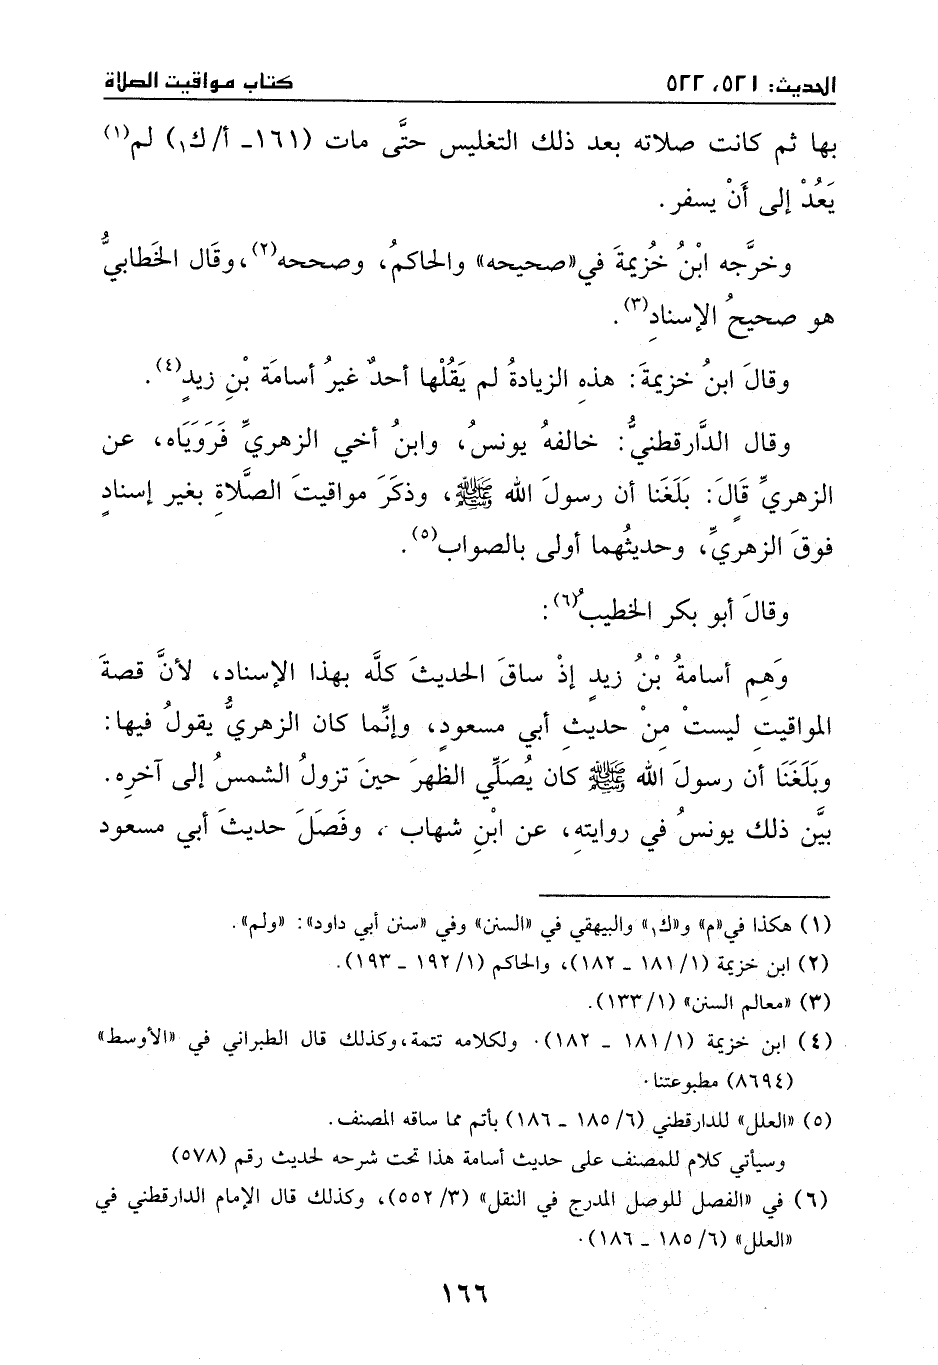 الحديث: ٥٢١، ٥٢٢
كتاب مواقيت الصلاة
بها ثم كانت صلاته بعد ذلك التغليس حتَّى مات (١٦١- أ/ك١) لم(١)
يَعُدْ إلى أَنْ يسفر.
وخرَّجه ابْنُ خُزيمةَ في«صحيحه» والحاكمُ، وصححه(٢)،وقَال الخَطابيُّ
هو صحيحُ الإسنادِ(٣).
وقالَ ابنُ خزيمةَ: هذهِ الزيادةُ لم يَقُلْها أحدٌ غيرُ أسامَة بْنِ زيدٍ(٤).
وقال الدَّارقطنيُّ: خالفهُ يونسُ، وابنُ أخي الزهريِّ فَرَوَيَاه، عن
الزهريِّ قَالَ: بَلَغَنا أن رسولَ الله ﷺ، وذكَرَ مواقيتَ الصَّلاةِ بغير إسنادٍ
فوقَ الزهريِّ، وحديثُهما أولى بالصواب(٥).
وقالَ أبو بكر الخطيبُ(٦):
وَهِم أسامةُ بْنُ زيدٍ إذْ ساقَ الحديثَ كلَّه بهذا الإسناد، لأنَّ قصةَ
المواقيتِ ليستْ مِنْ حديثِ أبي مسعودٍ، وإنَّما كان الزهريُّ يقولُ فيها:
وبَلَغَنَا أن رسولَ الله ﷺ كان يُصَلِّي الظهرَ حينَ تزولُ الشمسُ إلى آخرِه.
بيَّن ذلك يونسُ في روايتهِ، عن ابْنِ شهاب ، وفَصَلَ حديثَ أبي مسعود
(١) هكذا في«م» و«ك١» والبيهقي في «السنن» وفي «سنن أبي داود»: «ولم».
(٢) ابن خزيمة (١/ ١٨١ - ١٨٢)، والحاكم (١/ ١٩٢ - ١٩٣).
(٣) «معالم السنن» (١/ ١٣٣).
(٤) ابن خزيمة (١/ ١٨١ - ١٨٢). ولكلامه تتمة،وكذلك قال الطبراني في «الأوسط»
(٨٦٩٤) مطبوعتنا.
(٥) «العلل» للدارقطني (٦/ ١٨٥ - ١٨٦) بأتم مما ساقه المصنف.
وسيأتي كلام للمصنف على حديث أسامة هذا تحت شرحه لحديث رقم (٥٧٨)
(٦) في «الفصل للوصل المدرج في النقل» (٣/ ٥٥٢)، وكذلك قال الإمام الدارقطني في
«العلل» (٦/ ١٨٥ - ١٨٦).
١٦٦